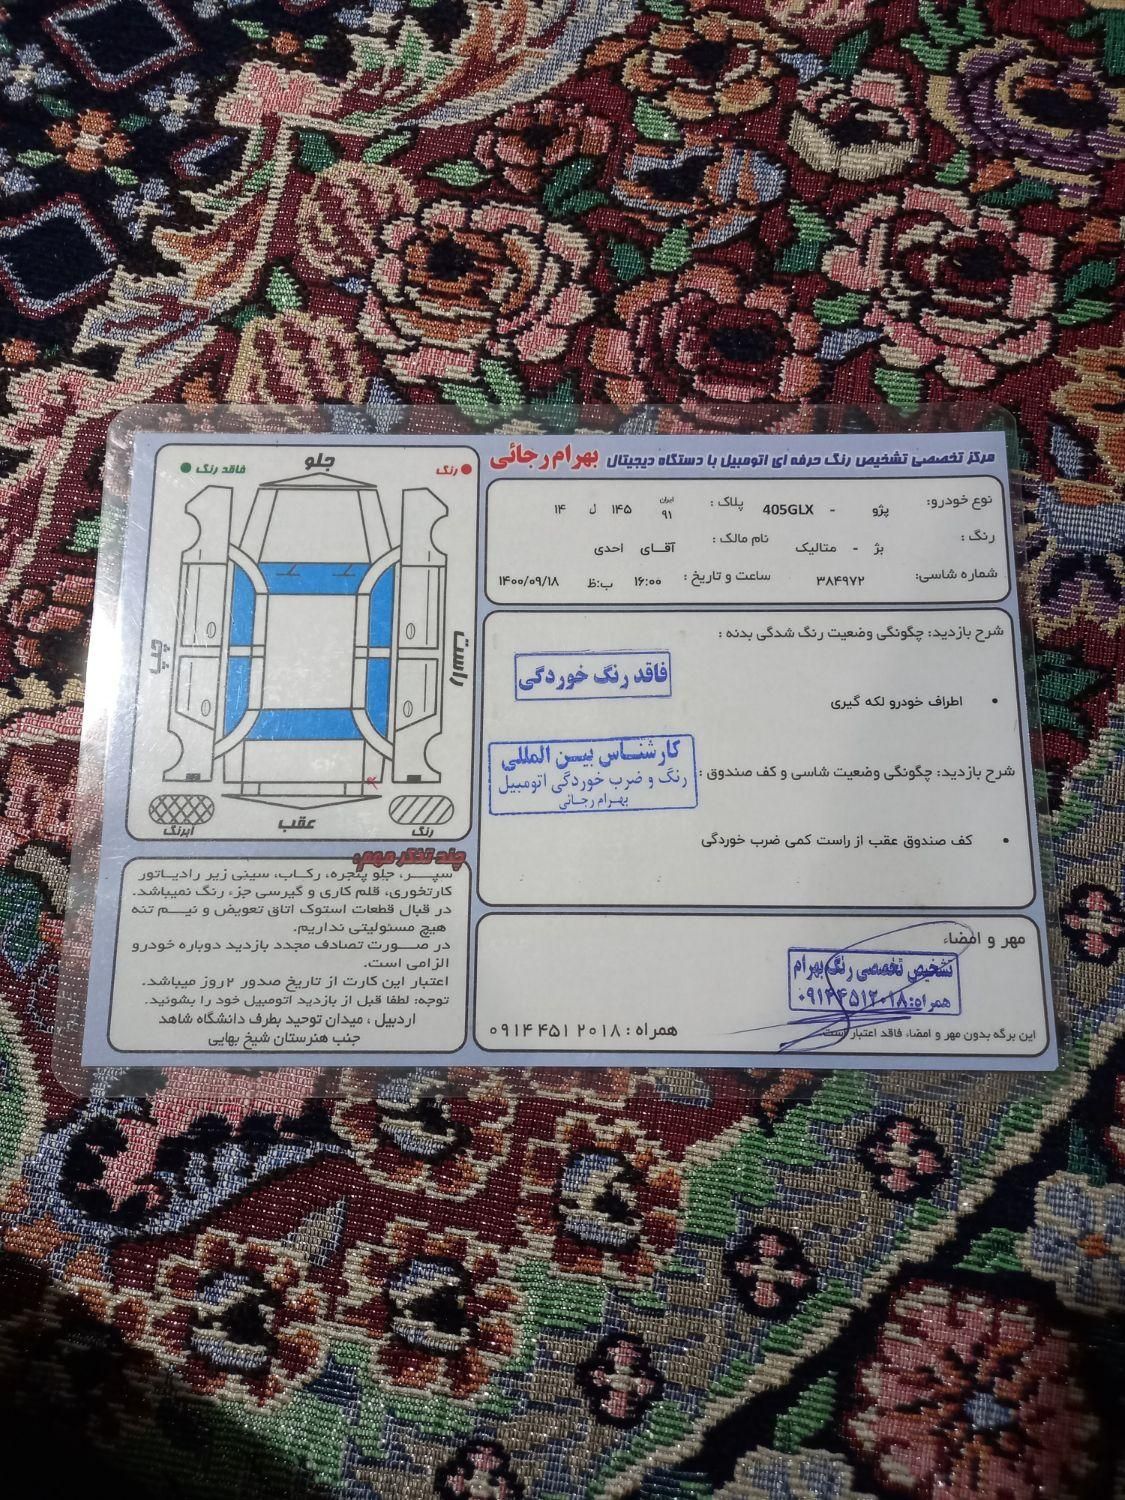 مرکز تخصصی تشخیص رنگ حرفه ای اتومبیل با دستگاه دیجیتال بهرام رجائی
نوع خودرو: پژو - 405GLX پلاک : ایران ۹۱ ۱۴۵ ل ۱۴
رنگ : بژ - متالیک نام مالک : آقـای احدی
شماره شاسی: ۳۸۴۹۷۲ ساعت و تاریخ : ۱۶:۰۰ ب:ظ ۱۴۰۰/۰۹/۱۸
شرح بازدید: چگونگی وضعیت رنگ شدگی بدنه :
فاقد رنگ خوردگی
• اطراف خودرو لکه گیری
شرح بازدید: چگونگی وضعیت شاسی و کف صندوق :
کارشناس بین المللی
رنگ و ضرب خوردگی اتومبیل
بهرام رجائی
• کف صندوق عقب از راست کمی ضرب خوردگی
مهر و امضاء
تشخیص تخصصی رنگ بهرام
همراه: ۰۹۱۴۴۵۱۲۰۱۸
این برگه بدون مهر و امضاء فاقد اعتبار است.
همراه : ۰۹۱۴ ۴۵۱ ۲۰۱۸
رنگ
جلو
فاقد رنگ
راست
چپ
عقب
رنگ
آبرنگ
چند تذکر مهم:
سپـر، جلو پنجره، رکاب، سینی زیر رادیاتور
کارتخوری، قلم کاری و گیرسی جزء رنگ نمیباشد.
در قبال قطعات استوک اتاق تعویض و نیـم تنه
هیچ مسئولیتی نداریم.
در صـورت تصادف مجدد بازدید دوباره خودرو
الزامی است.
اعتبار این کارت از تاریخ صدور ۲روز میباشد.
توجه: لطفا قبل از بازدید اتومبیل خود را بشوئید.
اردبیل ، میدان توحید بطرف دانشگاه شاهد
جنب هنرستان شیخ بهایی